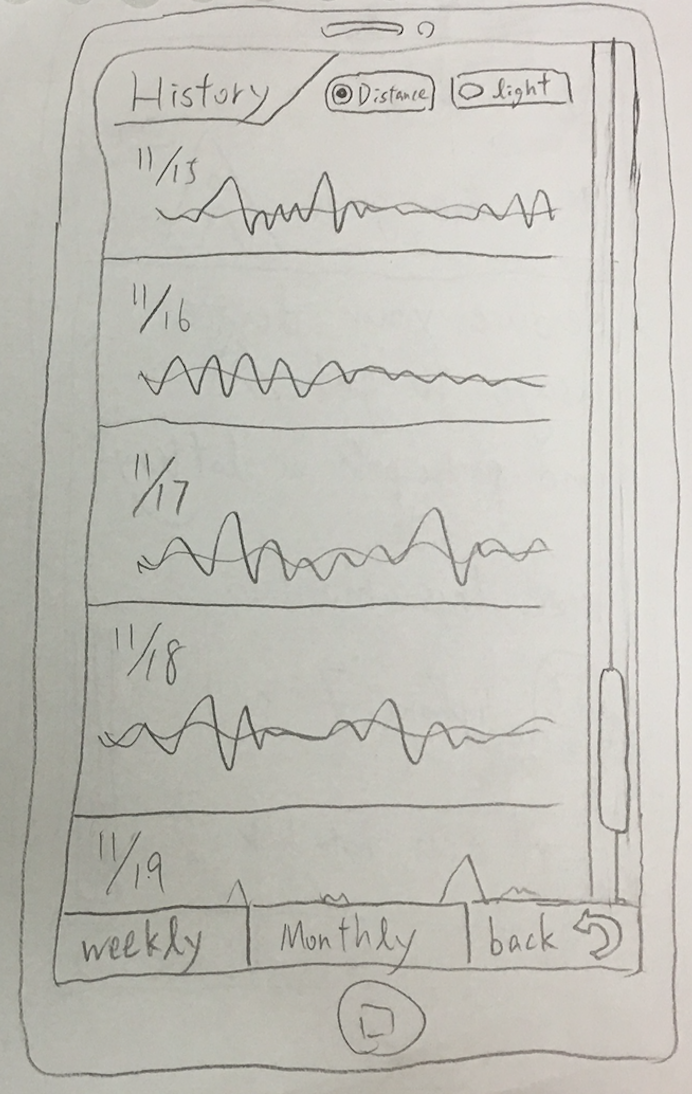 History
Distance
light
11/15
11/16
11/17
11/18
11/19
weekly
Monthly
back